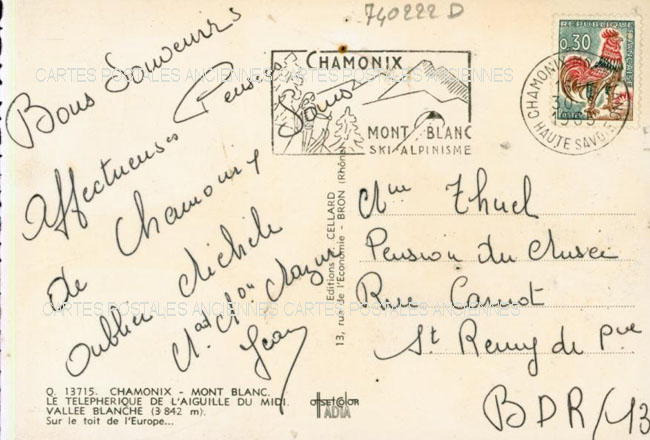 740222 D
REPUBLIQUE FRANÇAISE
0,30
Postes
CHAMONIX
MONT BLANC
SKI-ALPINISME
CHAMONIX
30
HAUTE SAVOIE
Bons Souvenirs
Pensées
Affectueuses
Sans
de Chamonix
oublier Michèle
Jean
Editions J. CELLARD
13, rue de l'Economie - BRON (Rhône)
Mme Thuel
Pension du Musée
Rue Carnot
St Remy de Pce
BDR/13
Q. 13715. CHAMONIX - MONT BLANC.
LE TELEPHERIQUE DE L'AIGUILLE DU MIDI.
VALLEE BLANCHE (3 842 m).
Sur le toit de l'Europe...
OFFSETCOLOR
IADIA
CARTES POSTALES ANCIENNES CARTES POSTALES ANCIENNES
CARTES POSTALES ANCIENNES CARTES POSTALES ANCIENNES